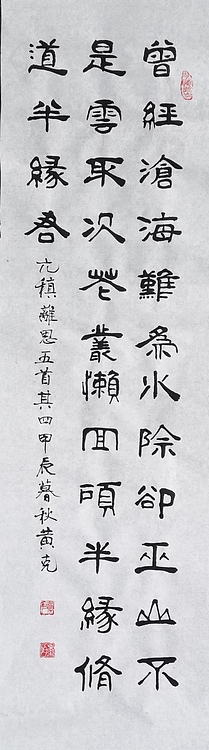 曾經滄海難為水除卻巫山不
是雲取次花叢懶回頭半緣脩
道半緣君
元稹離思五首其四甲辰暮秋黄克